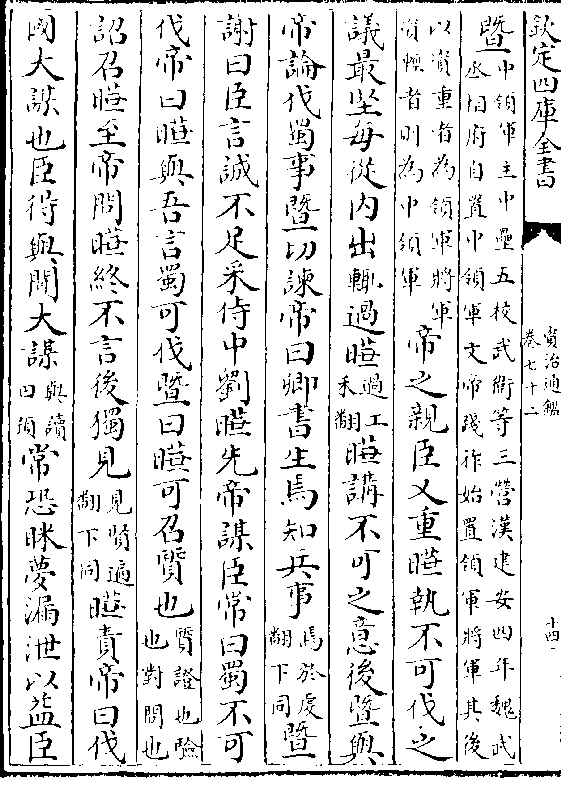 欽定四庫全書
資治通鑑
卷七十二
十四
暨中領軍主中壘五校武衛等三營漢建安四年魏武
丞相府自置中領軍文帝踐祚始置領軍將軍其後
以資重者為領軍將軍
資輕者則為中領軍帝之親臣又重曄執不可伐之
議最堅每從內出輒過曄過工
禾翻曄講不可之意後暨與
帝論伐蜀事暨切諫帝曰卿書生焉知兵事焉於䖍
翻下同暨
謝曰臣言誠不足采侍中劉曄先帝謀臣常曰蜀不可
伐帝曰曄與吾言蜀可伐暨曰曄可召質也質證也驗
也對問也
詔召曄至帝問曄終不言後獨見見賢遍
翻下同曄責帝曰伐
國大謀也臣得與聞大謀與讀
曰預常恐眯夢漏泄以益臣